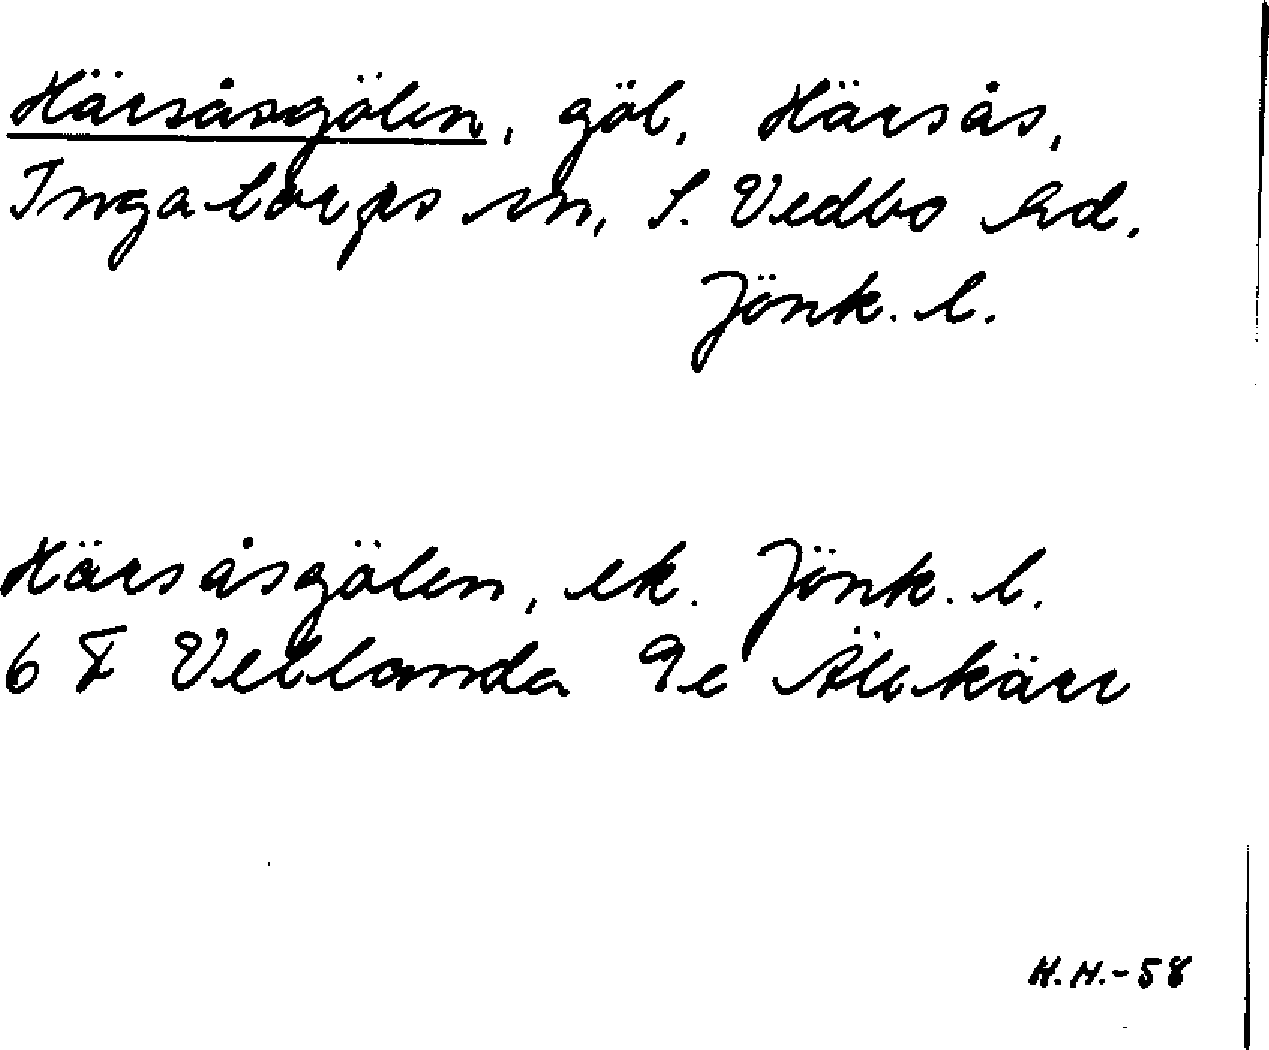 Härsåsgölen, göl, Härsås,
Ingatorps sn, S. Vedbo hd.
Jönk. l.
Härsåsgölen, ek. Jönk. l.
6 F Vetlanda 9e Älekärr
H.H.-58